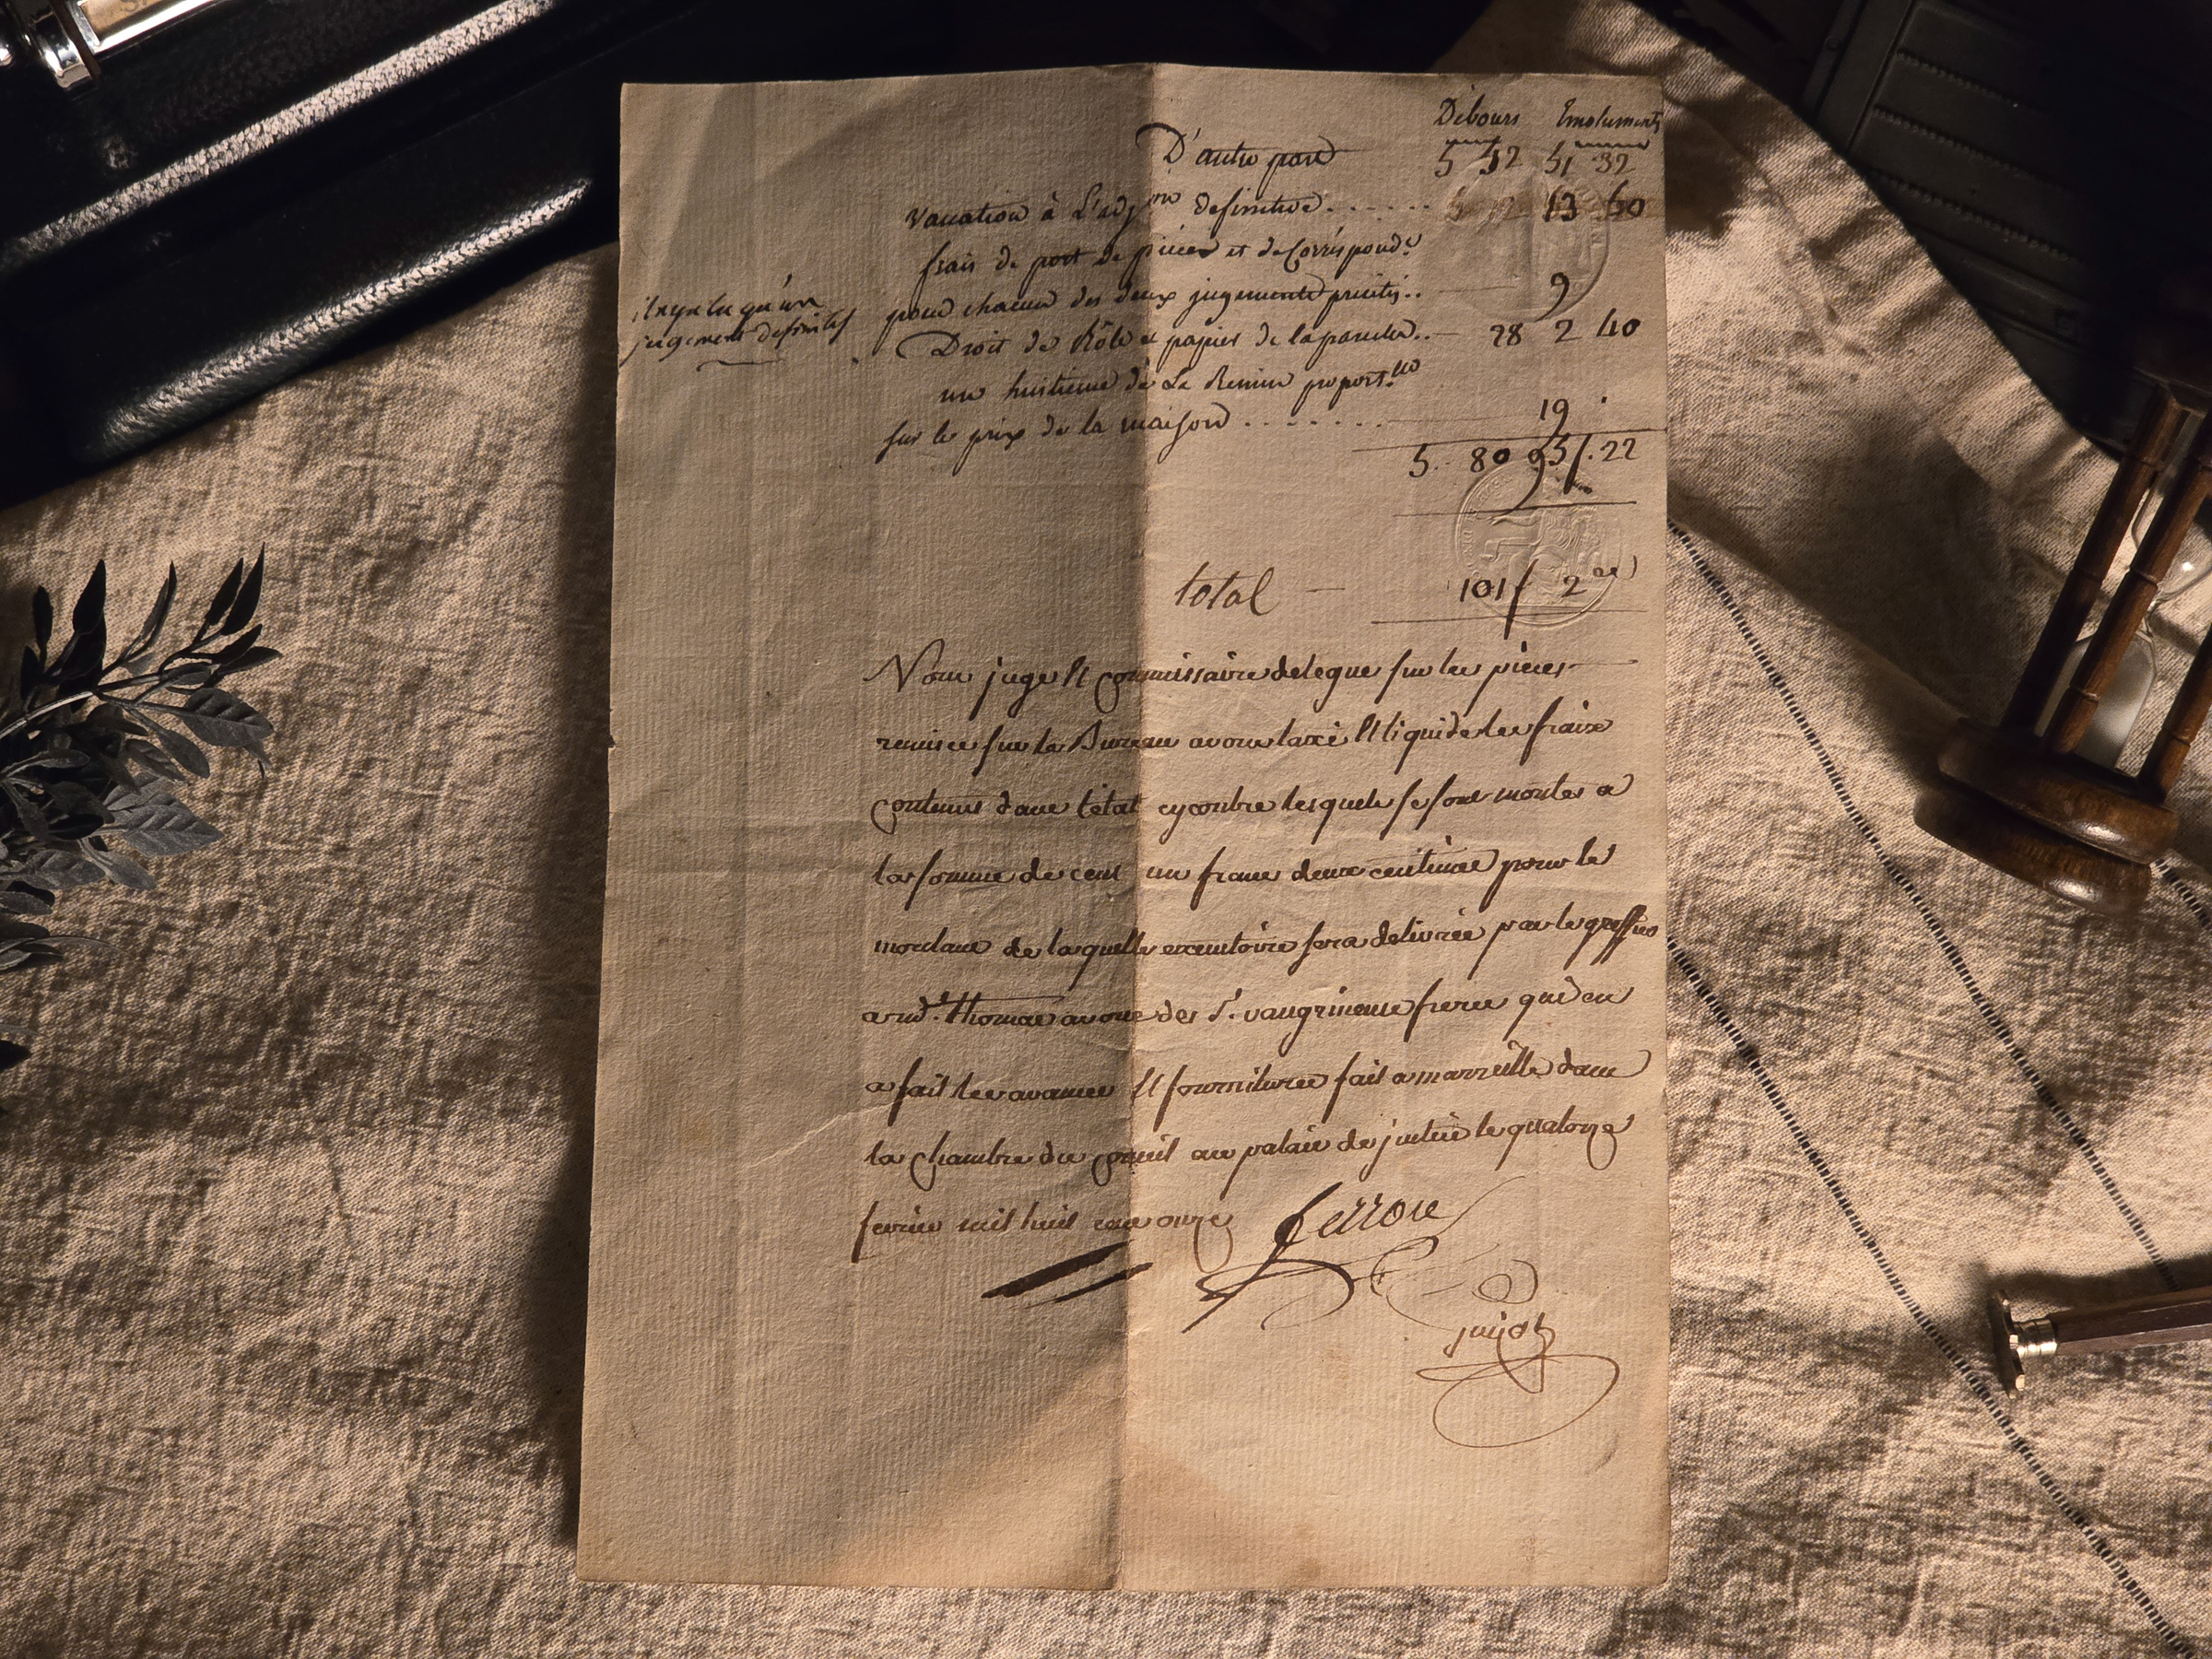 Débours Emoluments
D'autre part 5 52 51 32
vacation à L'adj.on definitive...... 13 50
frais de port de pieces et de Correspond.e
pour chacun des deux jugements .. 9
il n'y a eu qu'un
jugement definitif
Droit de Rôle et papier de la .. 28 2 40
un huitieme de La Remise proport.lle
sur le prix de la maison ....... 19 .
5. 80 95f. 22
total — 101f 2 ces
Nous juge Et Commissaire delegue sur les pieces
remises sur le Bureau avons taxé Et liquidé les fraix
Contenus dans l'état cy contre lesquels se sont montes a
la somme de cent un francs deux centimes pour le
montant de laquelle executoire sera delivrée par le greffier
a md. Thomas avoue des Srs. vaugrineuse freres qui en
a fait les avances Et fournitures fait a marseille dans
la chambre du Conseil au palais de justice le quatorze
fevrier mil huit cens onze